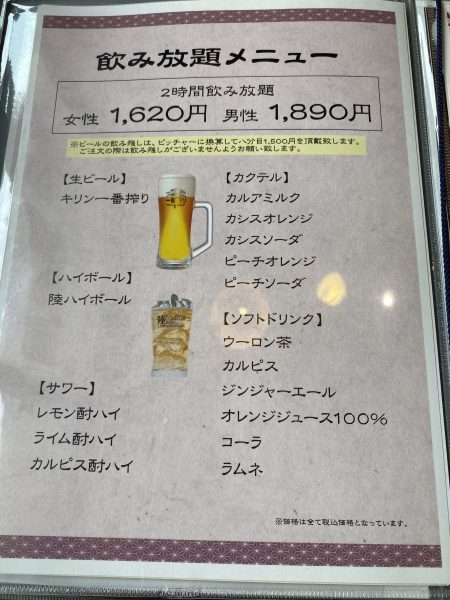 飲み放題メニュー
2時間飲み放題
女性 1,620円 男性 1,890円
※ビールの飲み残しは、ピッチャーに換算して八分目1,500円を頂戴致します。
ご注文の際は飲み残しがございませんようお願い致します。
【生ビール】
キリン一番搾り
【ハイボール】
陸ハイボール
【サワー】
レモン酎ハイ
ライム酎ハイ
カルピス酎ハイ
【カクテル】
カルアミルク
カシスオレンジ
カシスソーダ
ピーチオレンジ
ピーチソーダ
【ソフトドリンク】
ウーロン茶
カルピス
ジンジャーエール
オレンジジュース100%
コーラ
ラムネ
陸
※価格は全て税込価格となっています。